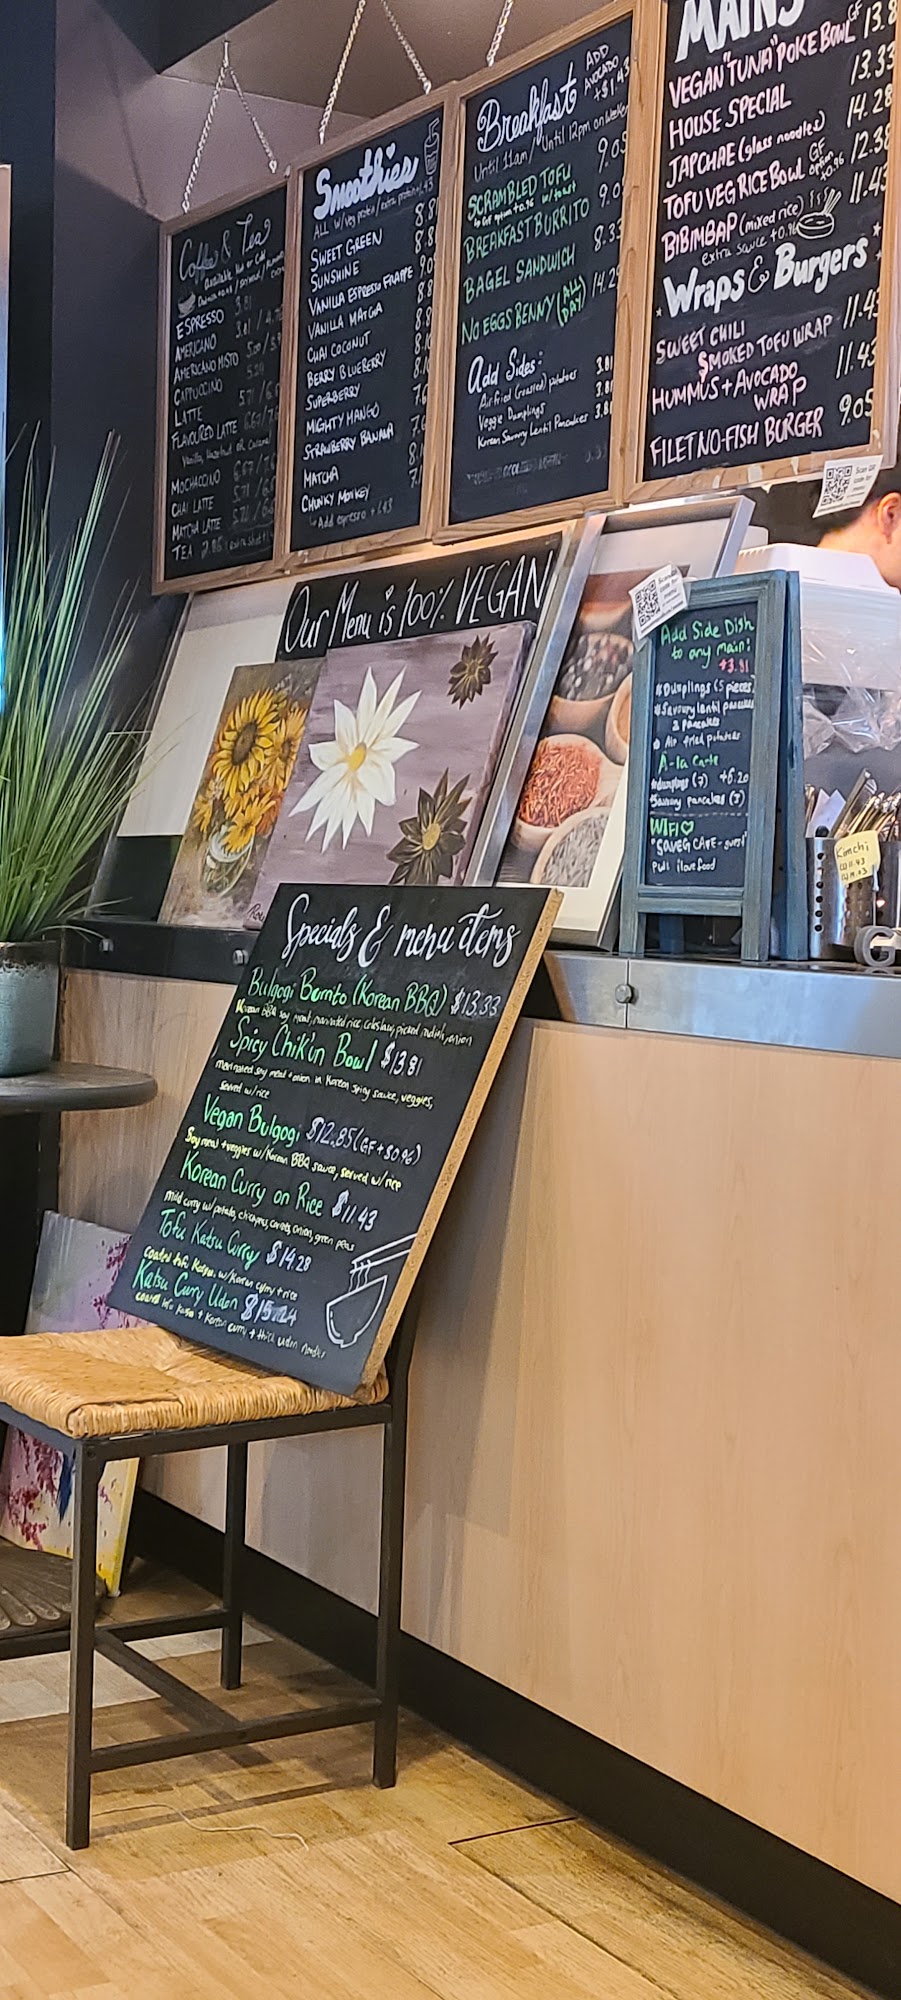 Coffee & Tea
ESPRESSO 3.81
AMERICANO 3.81 /
AMERICANO MISTO
CAPPUCCINO 5.24
LATTE 5.71 /
FLAVOURED LATTE 6.67 /
Vanilla, Hazelnut or Caramel
MOCHACCINO 6.67 /
CHAI LATTE 5.71 /
MATCHA LATTE 5.71 /
TEA 2.86
Smoothies
ALL w/ veg protein / extra protein
SWEET GREEN
SUNSHINE
VANILLA ESPRESSO FRAPPE
VANILLA MATCHA
CHAI COCONUT
BERRY BLUEBERRY
SUPERBERRY
MIGHTY MANGO
STRAWBERRY BANANA
MATCHA
CHUNKY MONKEY
Add espresso
Breakfast
ADD AVOCADO +$1.43
Until 11am / Until 12pm on
SCRAMBLED TOFU 9.05
w/ toast
BREAKFAST BURRITO
BAGEL SANDWICH 8.33
NO EGGS BENNY (ALL DAY)
Add Sides:
Air fried (roasted) potatoes 3.81
Veggie Dumplings 3.81
Korean Savory Lentil Pancakes 3.81
MAINS
VEGAN "TUNA" POKE BOWL GF
HOUSE SPECIAL 13.33
JAPCHAE (glass noodles) 14.28
TOFU VEG RICE BOWL GF option +0.96 12.38
BIBIMBAP (mixed rice) 11.43
extra sauce +0.96
Wraps & Burgers
SWEET CHILI
SMOKED TOFU WRAP 11.43
HUMMUS + AVOCADO
WRAP 11.43
FILET NO-FISH BURGER 9.05
Scan QR
code for
menu
Our Menu is 100% VEGAN
code for
menu
Add Side Dish
to any main:
+3.81
Dumplings (5 pieces)
Savoury lentil pancakes
2 pancakes
Air fried potatoes
A-la Carte
dumplings (7) +6.20
Savoury pancakes (3)
WIFI
"SAVEG CAFE - guest"
PW: ilovefood
Kimchi
Specials & menu items
Bulgogi Burrito (Korean BBQ) $13.33
Korean BBQ soy meat, marinated rice, coleslaw, picked radish, onion
Spicy Chik'un Bowl $13.81
marinated soy meat + onion in Korean spicy sauce, veggies,
served w/ rice
Vegan Bulgogi $12.85 (GF + $0.96)
Soy meat + veggies w/ Korean BBQ sauce, served w/ rice
Korean Curry on Rice $11.43
mild curry w/ potato, chickpeas, carrots, onion, green peas
Tofu Katsu Curry $14.28
coated tofu Katsu, w/ Korean curry + rice
Katsu Curry Udon $15.24
coated tofu Katsu + Korean curry + thick udon noodles